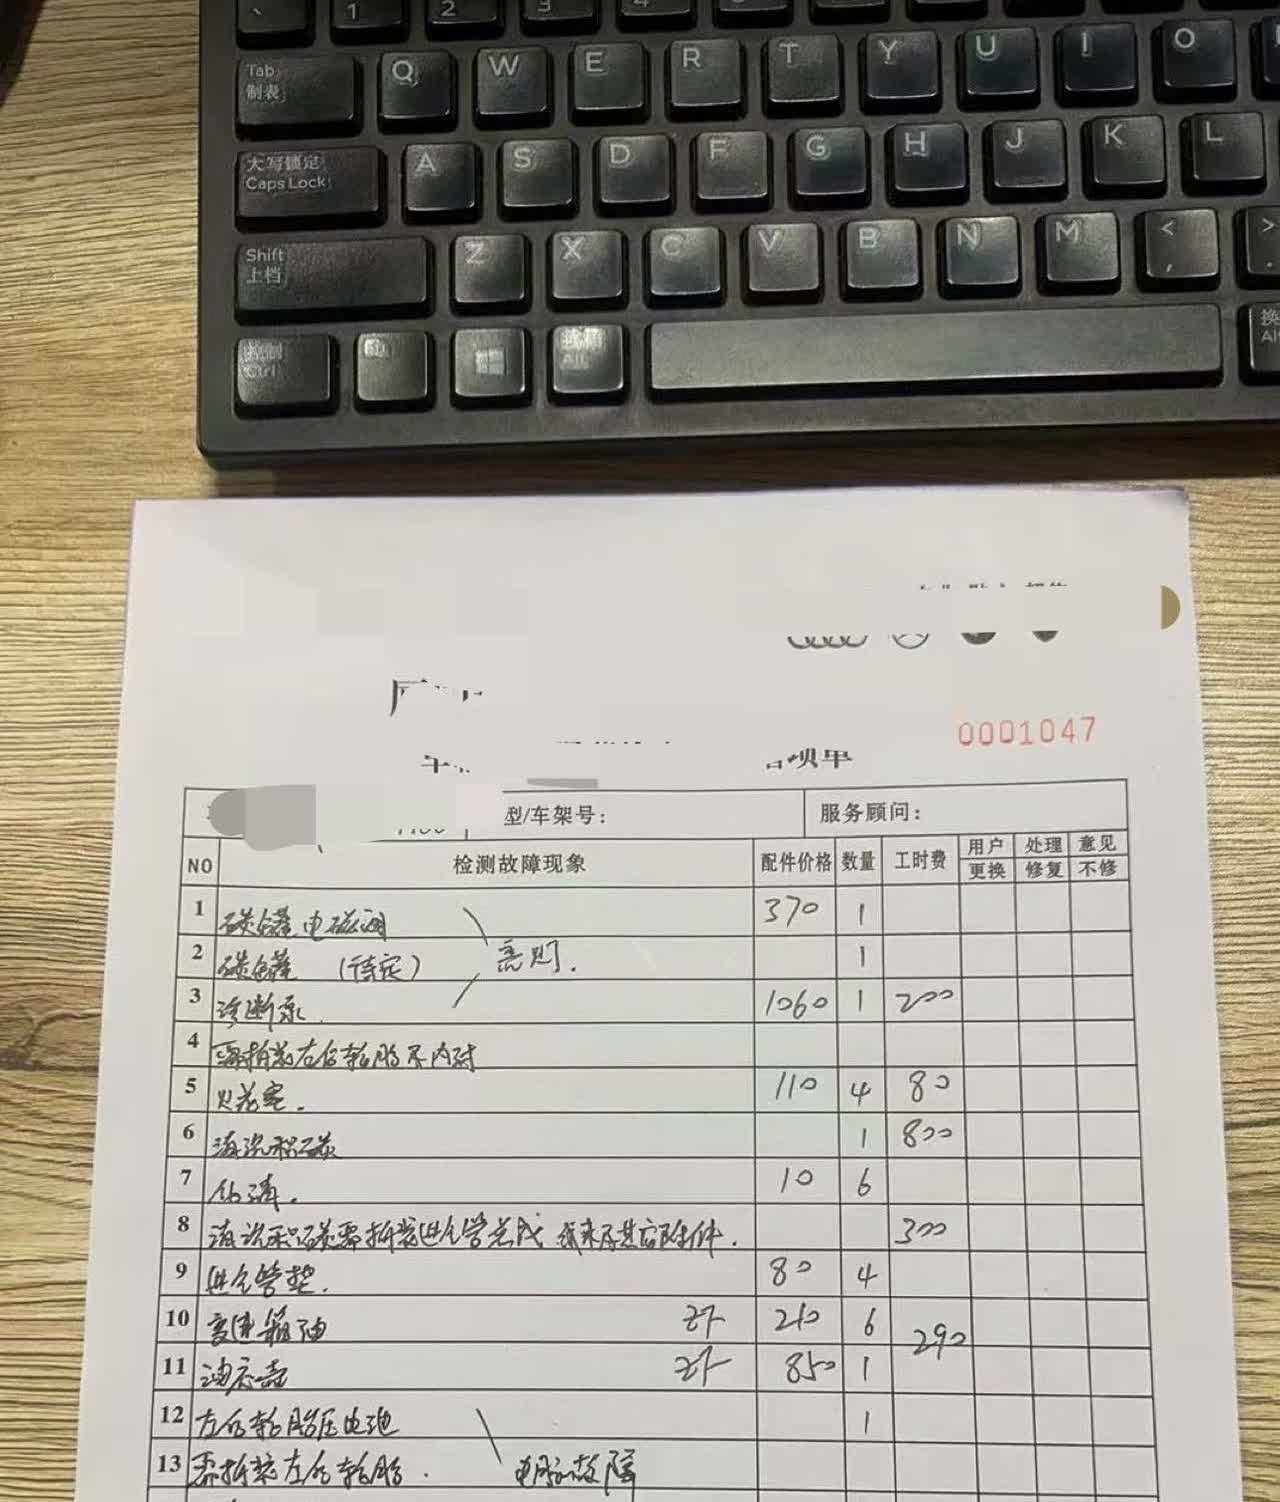 1 2 3 4
Tab Q W E R T Y U I O
制表
大写锁定 A S D F G H J K L
Caps Lock
Shift Z X C V B N M < >
上档 , .
控制 换
Ctrl Alt Alt
0001047
型/车架号： 服务顾问：
NO 检测故障现象 配件价格 数量 工时费 用户 处理 意见
更换 修复 不修
1 碳罐电磁阀 370 1
2 碳罐 （待定） 1
3 诊断泵. 1060 1 200
4 需拆装左后轮胎及内衬
5 火花塞. 110 4 80
6 清洗积碳 1 800
7 10 6
8 清洗积碳需拆装进气管总成 线束及其它附件. 300
9 进气管垫. 80 4
10 变速箱油 ZF 210 6 290
11 油底壳 ZF 850 1
12 左后轮胎压电池 1
13 需拆装左后轮胎. 电脑故障